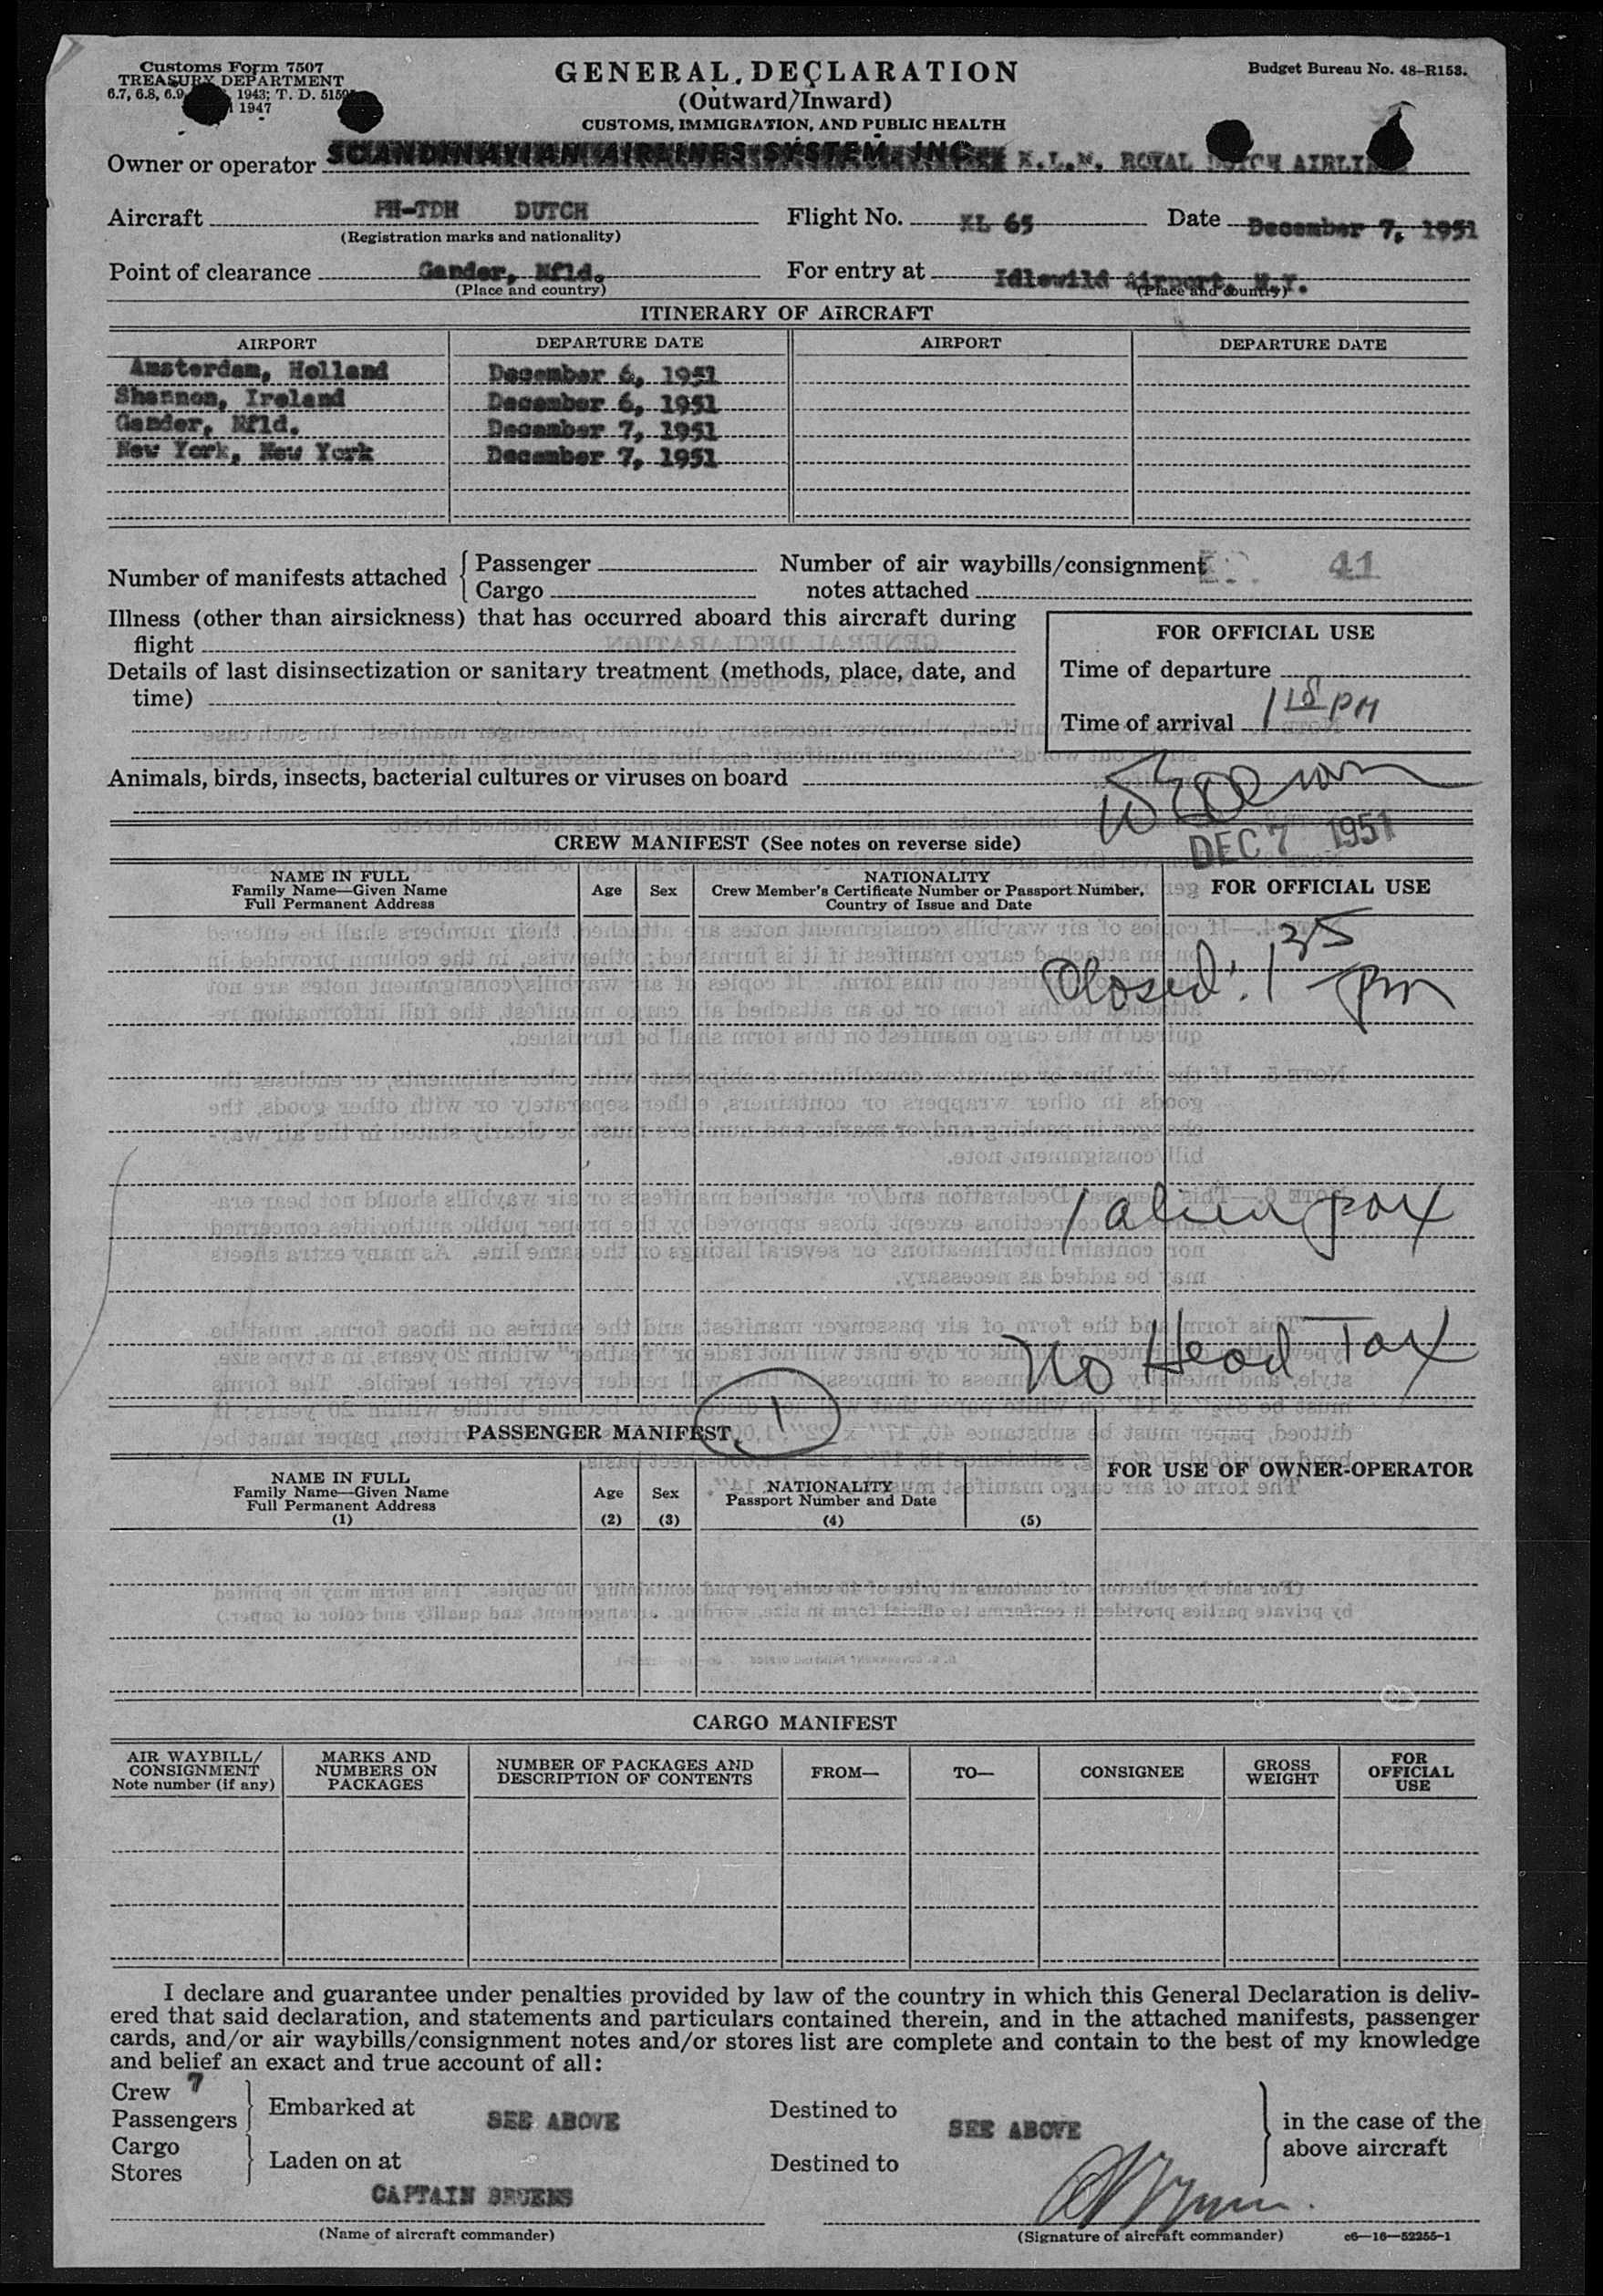 Customs Form 7507
TREASURY DEPARTMENT
6.7, 6.8, 6.9 1943; T. D. 5159
1947
GENERAL DECLARATION
(Outward/Inward)
CUSTOMS, IMMIGRATION, AND PUBLIC HEALTH
Budget Bureau No. 48-R153.
Owner or operator SCANDINAVIAN AIRLINES SYSTEM, INC. K.L.M. ROYAL DUTCH AIRLINES
Aircraft PH-TDH DUTCH Flight No. KL 65 Date December 7, 1951
(Registration marks and nationality)
Point of clearance Gander, Nfld. For entry at Idlewild Airport, N.Y.
(Place and country) (Place and country)
ITINERARY OF AIRCRAFT
AIRPORT DEPARTURE DATE AIRPORT DEPARTURE DATE
Amsterdam, Holland December 6, 1951
Shannon, Ireland December 6, 1951
Gander, Nfld. December 7, 1951
New York, New York December 7, 1951
Number of manifests attached { Passenger
Cargo
Number of air waybills/consignment
notes attached
41
Illness (other than airsickness) that has occurred aboard this aircraft during
flight
Details of last disinsectization or sanitary treatment (methods, place, date, and
time)
FOR OFFICIAL USE
Time of departure
Time of arrival 1 18 PM
Animals, birds, insects, bacterial cultures or viruses on board
DEC 7 1951
CREW MANIFEST (See notes on reverse side)
NAME IN FULL
Family Name—Given Name
Full Permanent Address
Age
Sex
NATIONALITY
Crew Member's Certificate Number or Passport Number,
Country of Issue and Date
FOR OFFICIAL USE
Closed: 1 35 pm
1 alien pax
No Head Tax
1
PASSENGER MANIFEST
NAME IN FULL
Family Name—Given Name
Full Permanent Address
(1)
Age
(2)
Sex
(3)
NATIONALITY
Passport Number and Date
(4)
(5)
FOR USE OF OWNER-OPERATOR
CARGO MANIFEST
AIR WAYBILL/
CONSIGNMENT
Note number (if any)
MARKS AND
NUMBERS ON
PACKAGES
NUMBER OF PACKAGES AND
DESCRIPTION OF CONTENTS
FROM—
TO—
CONSIGNEE
GROSS
WEIGHT
FOR
OFFICIAL
USE
I declare and guarantee under penalties provided by law of the country in which this General Declaration is deliv-
ered that said declaration, and statements and particulars contained therein, and in the attached manifests, passenger
cards, and/or air waybills/consignment notes and/or stores list are complete and contain to the best of my knowledge
and belief an exact and true account of all:
Crew 7
Passengers
Embarked at SEE ABOVE Destined to SEE ABOVE
Cargo
Stores
Laden on at Destined to
in the case of the
above aircraft
CAPTAIN BRUENS
(Name of aircraft commander) (Signature of aircraft commander) c6—16—52255-1